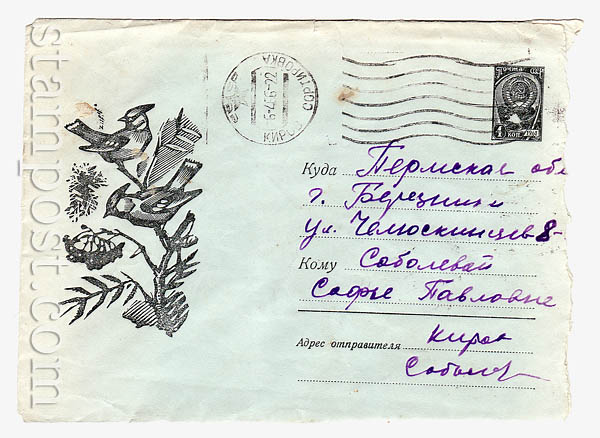 stamp-post.com
КИРОВ
СОРТИРОВКА
ПОЧТА СССР
4
КОП
Куда Пермская обл
г. Березники
ул. Челюскинцев 8-
Кому Соболевой
Софье Павловне
Адрес отправителя Киров